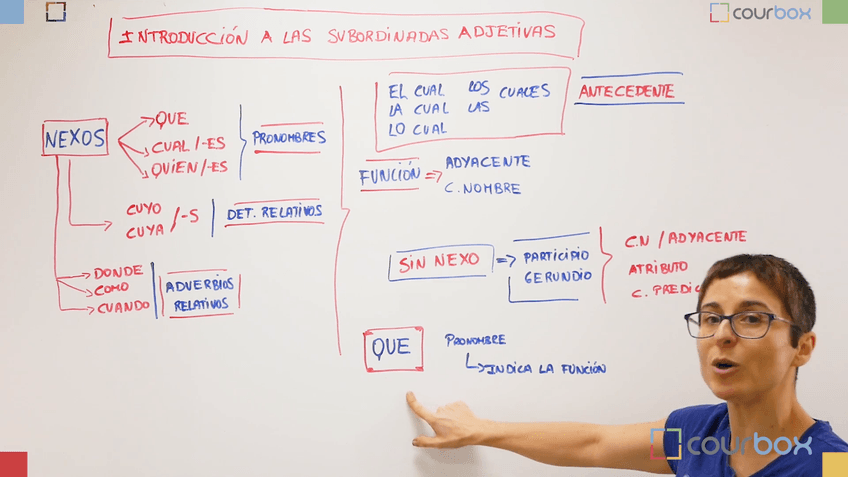 courbox
INTRODUCCIÓN A LAS SUBORDINADAS ADJETIVAS
NEXOS
QUE
CUAL/-ES
QUIEN/-ES
PRONOMBRES
CUYO
CUYA /-S
DET. RELATIVOS
DONDE
COMO
CUANDO
ADVERBIOS
RELATIVOS
EL CUAL LOS CUALES
LA CUAL LAS
LO CUAL
ANTECEDENTE
FUNCIÓN
ADYACENTE
C. NOMBRE
SIN NEXO
PARTICIPIO
GERUNDIO
C.N / ADYACENTE
ATRIBUTO
C. PREDIC
QUE
PRONOMBRE
INDICA LA FUNCIÓN
courbox